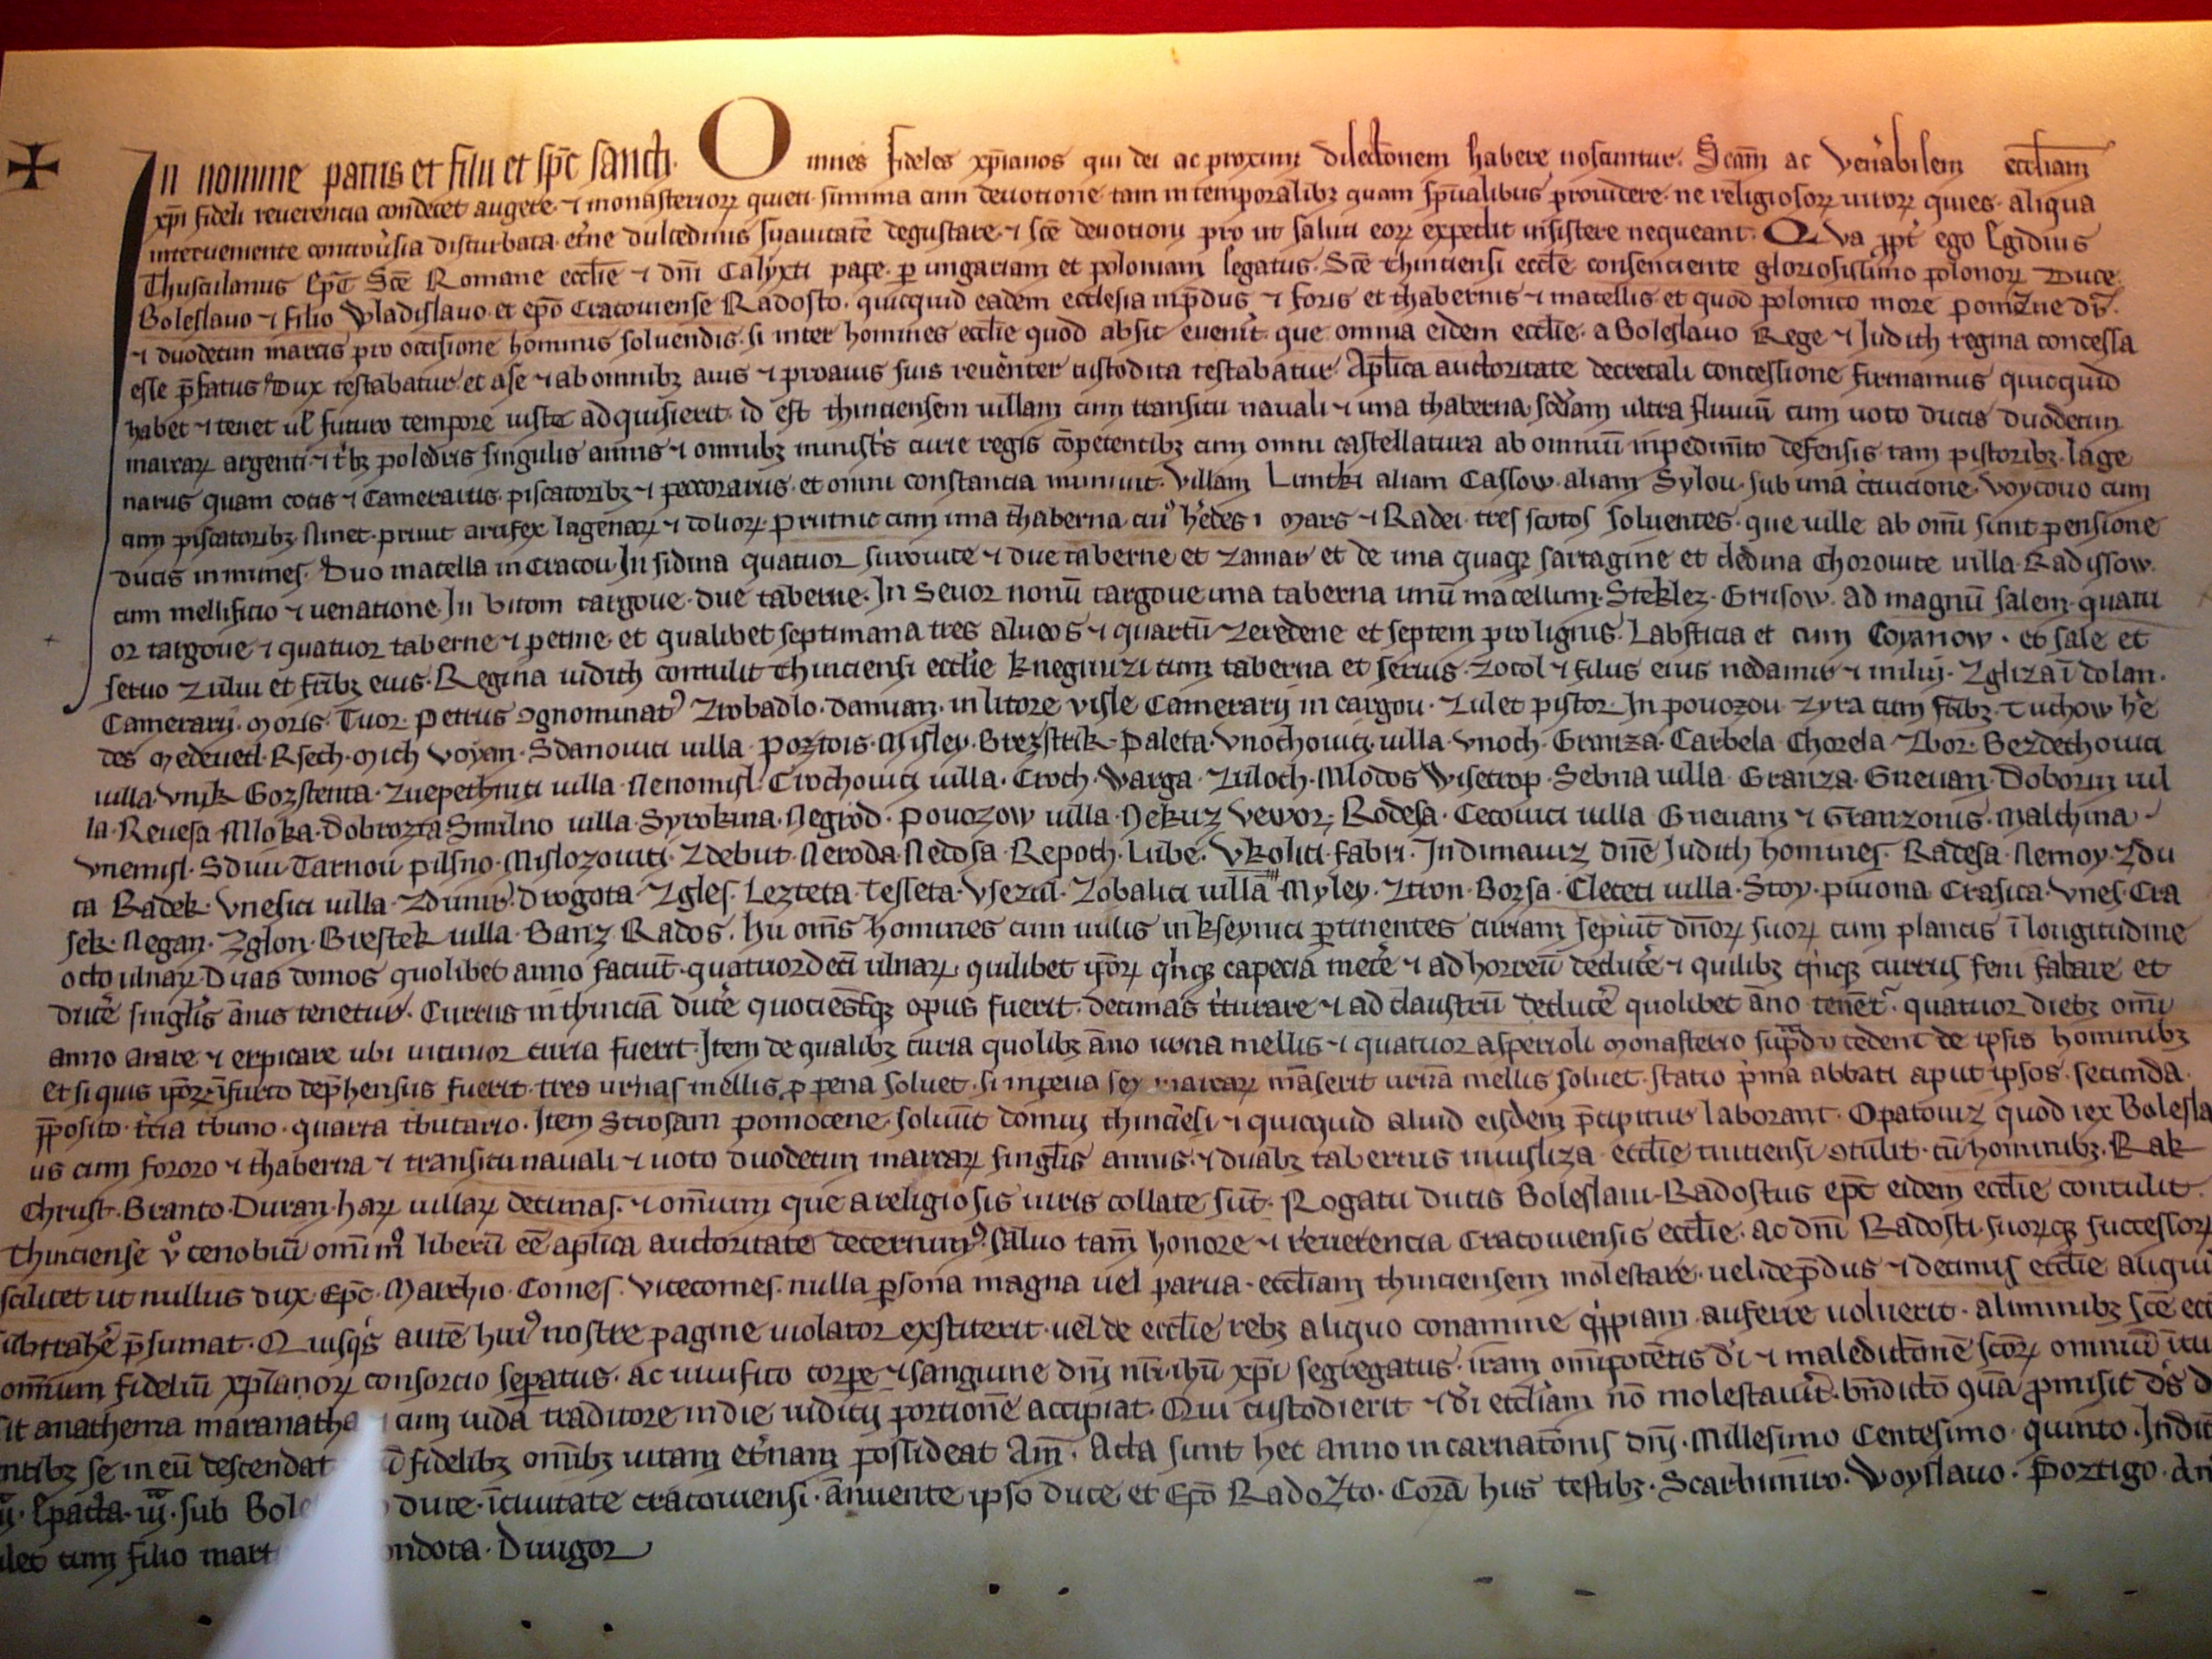 ✠ In nomine patris et filii et spc̄ sancti. Omnes fideles xp̄ianos qui dei ac proximi dilectionem habere noscuntur. Scām ac venerabilem eccl̄iam
xp̄i fideli reuerencia condecet augere ⁊ monasterioꝝ quieti summa cum deuotione tam in temporalibꝫ quam sp̄ualibus prouidere. ne religiosoꝝ uiroꝝ quies aliqua
interueniente controu̓sia disturbata. et̓ne dulcedinis suauitatē degustare ⁊ scē deuotioni pro ut saluti eoꝝ expedit insistere nequeant. Qua ꝓpt̓ ego Egidius
Thusculanus Ep̄c Scē Romane eccl̄ie ⁊ dn̄i Calyxti pape ꝑ ungariam et poloniam legatus. Scē thinciensi eccl̄e consenciente gloriosissimo polonoꝝ Duce
Boleslauo ⁊ filio Vladislauo et ep̄o Cracouiense Radosto. quicquid eadem ecclesia in p̄dus ⁊ foris et thabernis ⁊ macellis et quod polonico more pomozne dr̄.
⁊ duodecim marcis pro occisione hominis soluendis. si inter homines eccl̄ie quod absit euenīt. que omnia eidem eccl̄ie. a Boleslauo Rege ⁊ Iudith regina concessa
esse p̄fatus Dux testabatur. et a se ⁊ ab omnibꝫ auis ⁊ proauis suis reuēnter custodita testabatur. Ap̄lica auctoritate decretali concessione firmamus quicquid
habet ⁊ tenet ul̄ futuro tempore iuste adquisierit. id est thinciensem uillam cum transitu nauali ⁊ una thaberna. scd̄am ultra fluuiū cum uoto ducis duodecim
marcaꝝ argenti. ⁊ t̓bꝫ poledris singulis annis ⁊ omnibꝫ minist̓s curie regis cōpetentibꝫ cum omni castellatura ab omniū inpedim̄to defensis tam pistoribꝫ. lage
nariis quam cocis ⁊ Camerariis. piscatoribꝫ ⁊ peccorariis. et omni constancia muniuit. Villam Luntki aliam Cassow. aliam Sylou. sub una c̓cuicione. Voycouo cum
cum piscatoribꝫ. Ninet. priuit artifex lagenaꝝ ⁊ dolioꝝ. Prutnic cum una thaberna. cui᾿ h̓edes ı Mars ⁊ Radei. tres scotos soluentes. que uille ab om̄i sunt pensione
ducis inmunes. Duo macella in Cracou. In sidina quatuor suroiuice ⁊ due taberne et zamar et de una quaqꝫ sartagine et cledina Chorouice uilla. Radissow.
cum mellificio ⁊ uenatione. In bitom targoue. due taberne. In Seuor nonū targoue una taberna unū macellum. Steklez. Grusow. Ad magnū salem. quatu
or targoue ⁊ quatuor taberne ⁊ penne. et qualibet septimana tres alueos ⁊ quartū zeredene et septem pro lignis. Labsticia et cum Coyanow. et sale et
seruo zului et fr̄ibꝫ eius. Regina iudith contulit Thinciensi eccl̄ie kneginizi cum taberna et seruis. Zocol ⁊ filius eius nedamir ⁊ milıj. Zgliza ī dolan.
Camerarij. Moris. Tuor. Petrus ꝯgnominat᾿ Zrobadlo. damian. in litore visle Camerarij in cargou. Zulet pistor. In pouozou. zyra cum fr̄ibꝫ. Tuchow he
des Medeuetl. Rsech. Mich Voyan. Sdanouici uilla. poztois. Misley. Brezstrik. Paleta. Vnochouici. uilla. Vnoch. Granza. Carbela Chorela. Zbor. Bezdechouici
uilla. Vnik Gozstenta. Zuepethnici uilla. Nenomisl. Crochouici uilla. Croch. Warga. Ziiloch. Mlodos Wisetrop. Sebna uilla. Granza. Gneuan. Doborin uil
la. Reuesa. Mloka. Dobrozta Smilno uilla. Syrokina. Negrod. Pouozow uilla. Nekuz Vewor; Rodesa. Cecouici uilla Gneuani ⁊ Granzonis. Malchina ⁊
vnemisl. Sdiui. Tarnou. pilsno. Mislozouici. Zdebut. Neroda. Nedosa. Repoch. Lube. Vkolici. fabri. In dimauiz dn̄e Iudith homines. Radesa. Nemoy. Zdu
ra Radek. Vnesici uilla. Zdimir᾿. Drogota. Zgles. Lezteta. tesseta. Vsezul. Zobalici uilla. Myley. Ztron. Bozsa. Clececi uilla. Stoy. piuona Crasica. Vnes. Cra
sek. Negan. Zglon. Brestek uilla. Banz Rados. hii om̄s homines cum uillis in kseynici ꝑtinentes curiam sepiūt dn̄oꝝ suoꝝ cum plancis ī longitudine
octo ulnaꝝ. Duas domos quolibet anno faciūt. quatuordeci ulnaꝝ. quilibet ip̄oꝝ qn̓qꝫ capecia mete̓ ⁊ ad horreū deduce̓ ⁊ quilibꝫ qn̓qꝫ currus feni falcare et
duce̓ singl̓is ānis tenetur. Currus in thinciā duce̓ quociescūqꝫ opus fuerit. decimas t̓turare ⁊ ad claustrū deducē quolibet āno tenēt᾿. quatuor diebꝫ om̄i
anno arare ⁊ erpicare ubi uicinior curia fuerit. Item de qualibꝫ curia quolibꝫ āno urna mellis ⁊ quatuor asperioli monasterio sup̄d̄o cedent de ipsis hominibꝫ
et si quis ip̄oꝝ ī furto dep̄hensus fuerit. tres urnas mellis ꝓ pena soluet. si in pena sex marcaꝝ māserit urnā mellis soluet. Statio p̓ma abbati aput ipsos. secunda
p̄posito. t̓cia t̓buno. quarta t̓butario. Item Strosam pomocene. soluūt domui thincīesi ⁊ quicquid aliud eisdem p̄cipitur laborant. Opatouiz quod rex Bolesla
us cum fororo ⁊ thaberna ⁊ transitu nauali ⁊ uoto duodecim marcaꝝ singl̓is annis. ⁊ duabꝫ tabernis in uisliza eccl̄ie tinciensi ꝯtulit. cū hominibꝫ. Rak
Chrust. Branto. Duran. haꝝ uillaꝝ decimas. ⁊ om̄ium que a religiosis uiris collate sūt. Rogatu ducis Boleslaui. Radostus ep̄c eidem eccl̄ie contulit.
Thinciense v̊ cenobiū omīm᾿ liberū eē ap̄lica auctoritate decernim᾿. saluo tam̄ honore ⁊ reuerencia Cracouiensis eccl̄ie. ac dn̄i Radosti. suoꝝqꝫ successoꝝ
scilicet ut nullus dux. Ep̄c. Marchio. Comes. Vicecomes. nulla ꝑsona magna uel parua. eccl̄iam thinciensem molestare. uel de p̄dus ⁊ decimis eccl̄ie aliqui
ubtrahe̓ p̄sumat. Quisq̓s autē hui᾿ nostre pagine uiolator exstiterit. uel de eccl̄ie rebꝫ aliquo conamine q̓ppiam. auferre uoluerit. a liminibꝫ scē ecc
omnium fideliū xp̄ianoꝝ consorcio seꝑatus. ac uiuifico corpe ⁊ sanguine dn̄i nr̄i. ihū xp̄i segregatus. iram omīpotētis di̓ ⁊ malediction̄e scōꝝ omniū īcu
sit anathema maranatha cum iuda traditore in die iudicij portionē accipiat. Qui custodierit ⁊ di̓ eccl̄iam nō molestauīt. bn̄dictō quā ꝓmisit d̓s d
ntibꝫ se in eū descendat fidelibꝫ omībꝫ uitam et̓nam possideat Am̄. Acta sunt hec anno incarnatōnis dn̄j. Millesimo Centesimo quinto. Indict
ij. Epacta. iij. sub Bole duce. ī ciuitate cracouiensi. ānuente ipso duce et Ep̄o Radozto. Corā hiis testibꝫ. Scarbimiro. Voyslauo. Poztigo. An
ulec cum filio mart ondota. Diugor